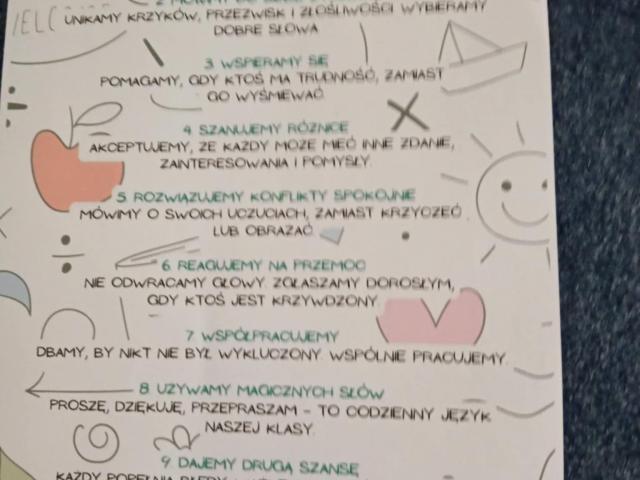 UNIKAMY KRZYKÓW, PRZEZWISK I ZŁOŚLIWOŚCI WYBIERAMY
DOBRE SŁOWA
3. WSPIERAMY SIĘ
POMAGAMY, GDY KTOŚ MA TRUDNOŚĆ, ZAMIAST
GO WYŚMIEWAĆ.
4. SZANUJEMY RÓŻNICE
AKCEPTUJEMY, ŻE KAŻDY MOŻE MIEĆ INNE ZDANIE,
ZAINTERESOWANIA I POMYSŁY.
5. ROZWIĄZUJEMY KONFLIKTY SPOKOJNIE
MÓWIMY O SWOICH UCZUCIACH, ZAMIAST KRZYCZEĆ
LUB OBRAŻAĆ.
6. REAGUJEMY NA PRZEMOC
NIE ODWRACAMY GŁOWY. ZGŁASZAMY DOROSŁYM,
GDY KTOŚ JEST KRZYWDZONY.
7. WSPÓŁPRACUJEMY
DBAMY, BY NIKT NIE BYŁ WYKLUCZONY. WSPÓLNIE PRACUJEMY.
8. UŻYWAMY MAGICZNYCH SŁÓW
PROSZĘ, DZIĘKUJĘ, PRZEPRASZAM – TO CODZIENNY JĘZYK
NASZEJ KLASY.
9. DAJEMY DRUGĄ SZANSĘ
KAŻDY POPEŁNIA